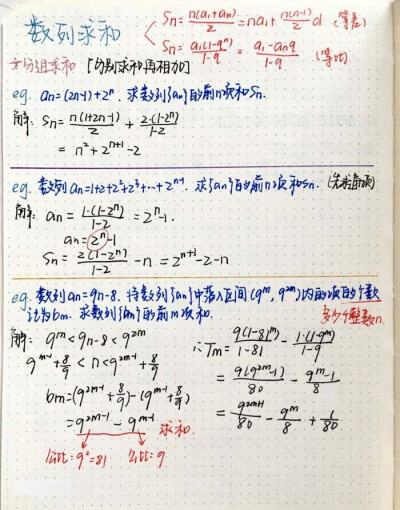 数列求和
Sn=n(a1+an)/2=na1+n(n-1)/2 d (等差)
Sn=a1(1-q^n)/1-q=a1-anq/1-q (等比)
分组求和「分别求和再相加」
eg. an=(2n-1)+2^n. 求数列{an}的前n项和Sn.
解: Sn=n(1+2n-1)/2+2·(1-2^n)/1-2
=n²+2^(n+1)-2
eg. 数列an=1+2+2²+2³+…+2^(n-1). 求{an}的前n项和Sn. (先求通项)
解: an=1·(1-2^n)/1-2=2^n-1.
an=2^n-1
Sn=2(1-2^n)/1-2-n=2^(n+1)-2-n
eg. 数列an=9n-8. 将数列{an}中落入区间(9^m, 9^2m)内的项的个数
记为bm. 求数列{bm}的前m项和. 多少个整数n.
解: 9^m<9n-8<9^2m
9^(m-1)+8/9<n<9^(2m-1)+8/9
bm=(9^(2m-1)+8/9)-(9^(m-1)+8/9)
=9^(2m-1)-9^(m-1) 求和.
公比:9²=81 公比:9
∴Tm=9(1-81^m)/1-81-1·(1-9^m)/1-9
=9(9^2m-1)/80-9^m-1/8
=9^(2m+1)/80-9^m/8+1/80